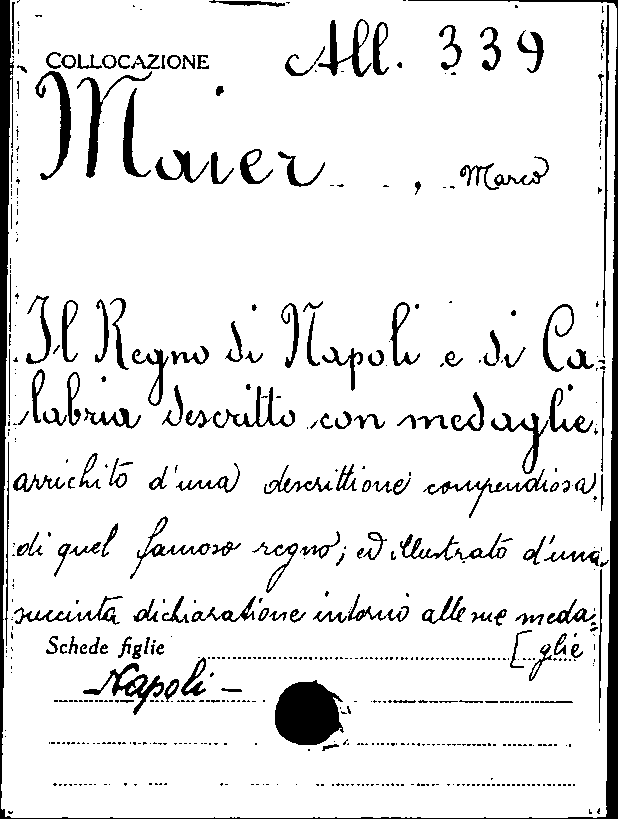 COLLOCAZIONE All. 339
Maier , Marco
Il Regno di Napoli e di Ca=
labria descritto con medaglie
arrichito d'una descrittione compendiosa
di quel famoso regno; ed illustrato d'una
succinta dichiaratione intorno alle sue meda=
Schede figlie [glie
-Napoli-